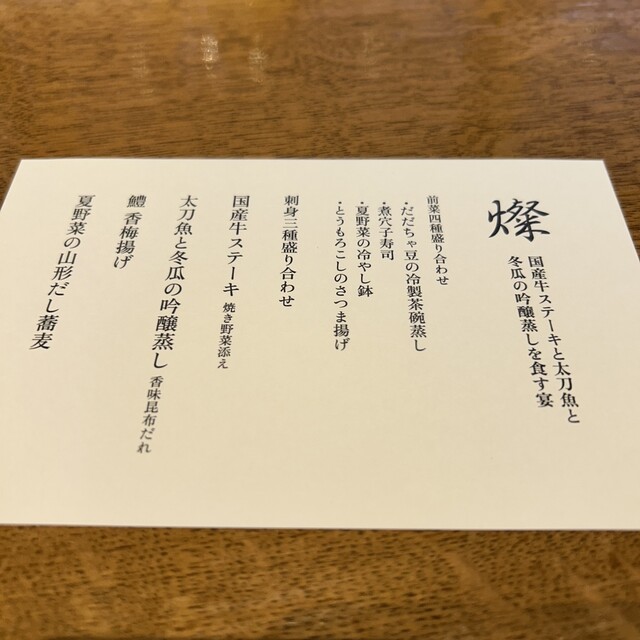 燦
国産牛ステーキと太刀魚と
冬瓜の吟醸蒸しを食す宴
前菜四種盛り合わせ
・だだちゃ豆の冷製茶碗蒸し
・煮穴子寿司
・夏野菜の冷やし鉢
・とうもろこしのさつま揚げ
刺身三種盛り合わせ
国産牛ステーキ 焼き野菜添え
太刀魚と冬瓜の吟醸蒸し 香味昆布だれ
鱧 香梅揚げ
夏野菜の山形だし蕎麦